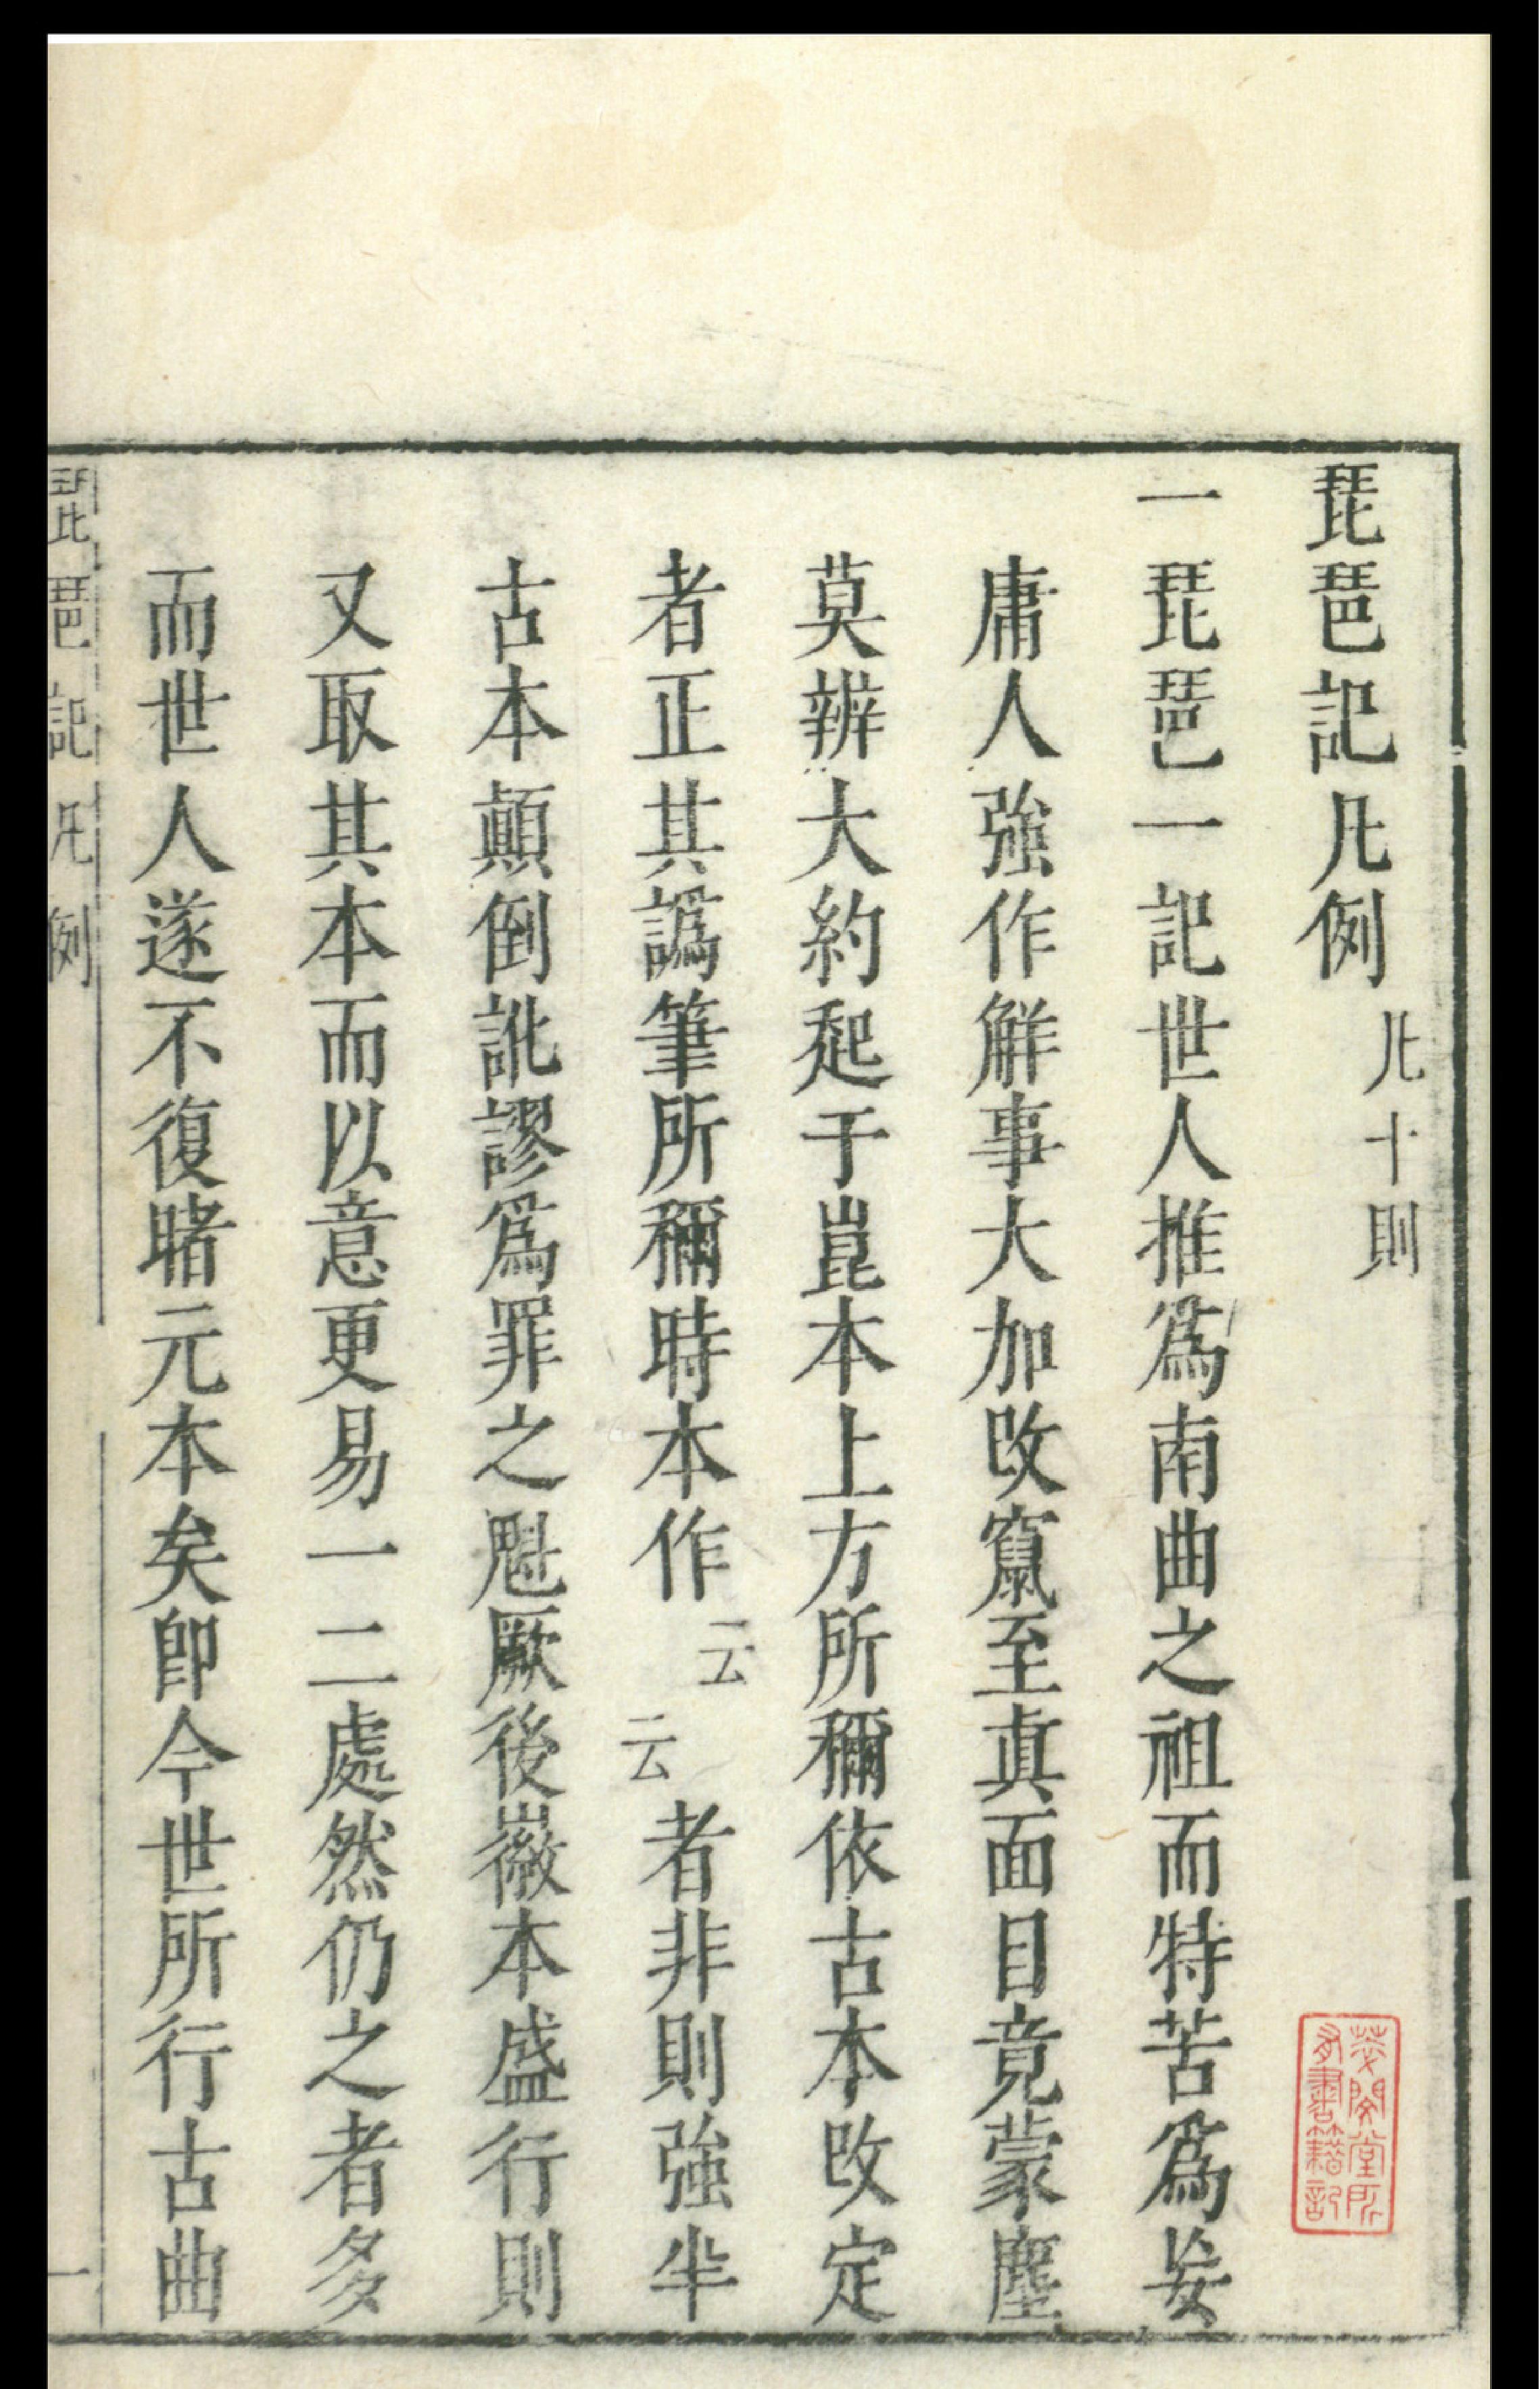 琵琶記凡例 凡十則
一琵琶一記世人推爲南曲之祖而特苦爲妄
庸人強作解事大加改竄至眞面目竟蒙塵
莫辨大約起于崑本上方所稱依古本改定
者正其譌筆所稱時本作云云者非則強半
古本顛倒訛謬爲罪之魁厥後徽本盛行則
又取其本而以意更易一二處然仍之者多
而世人遂不復睹元本矣卽今世所行古曲
琵琶記凡例 一